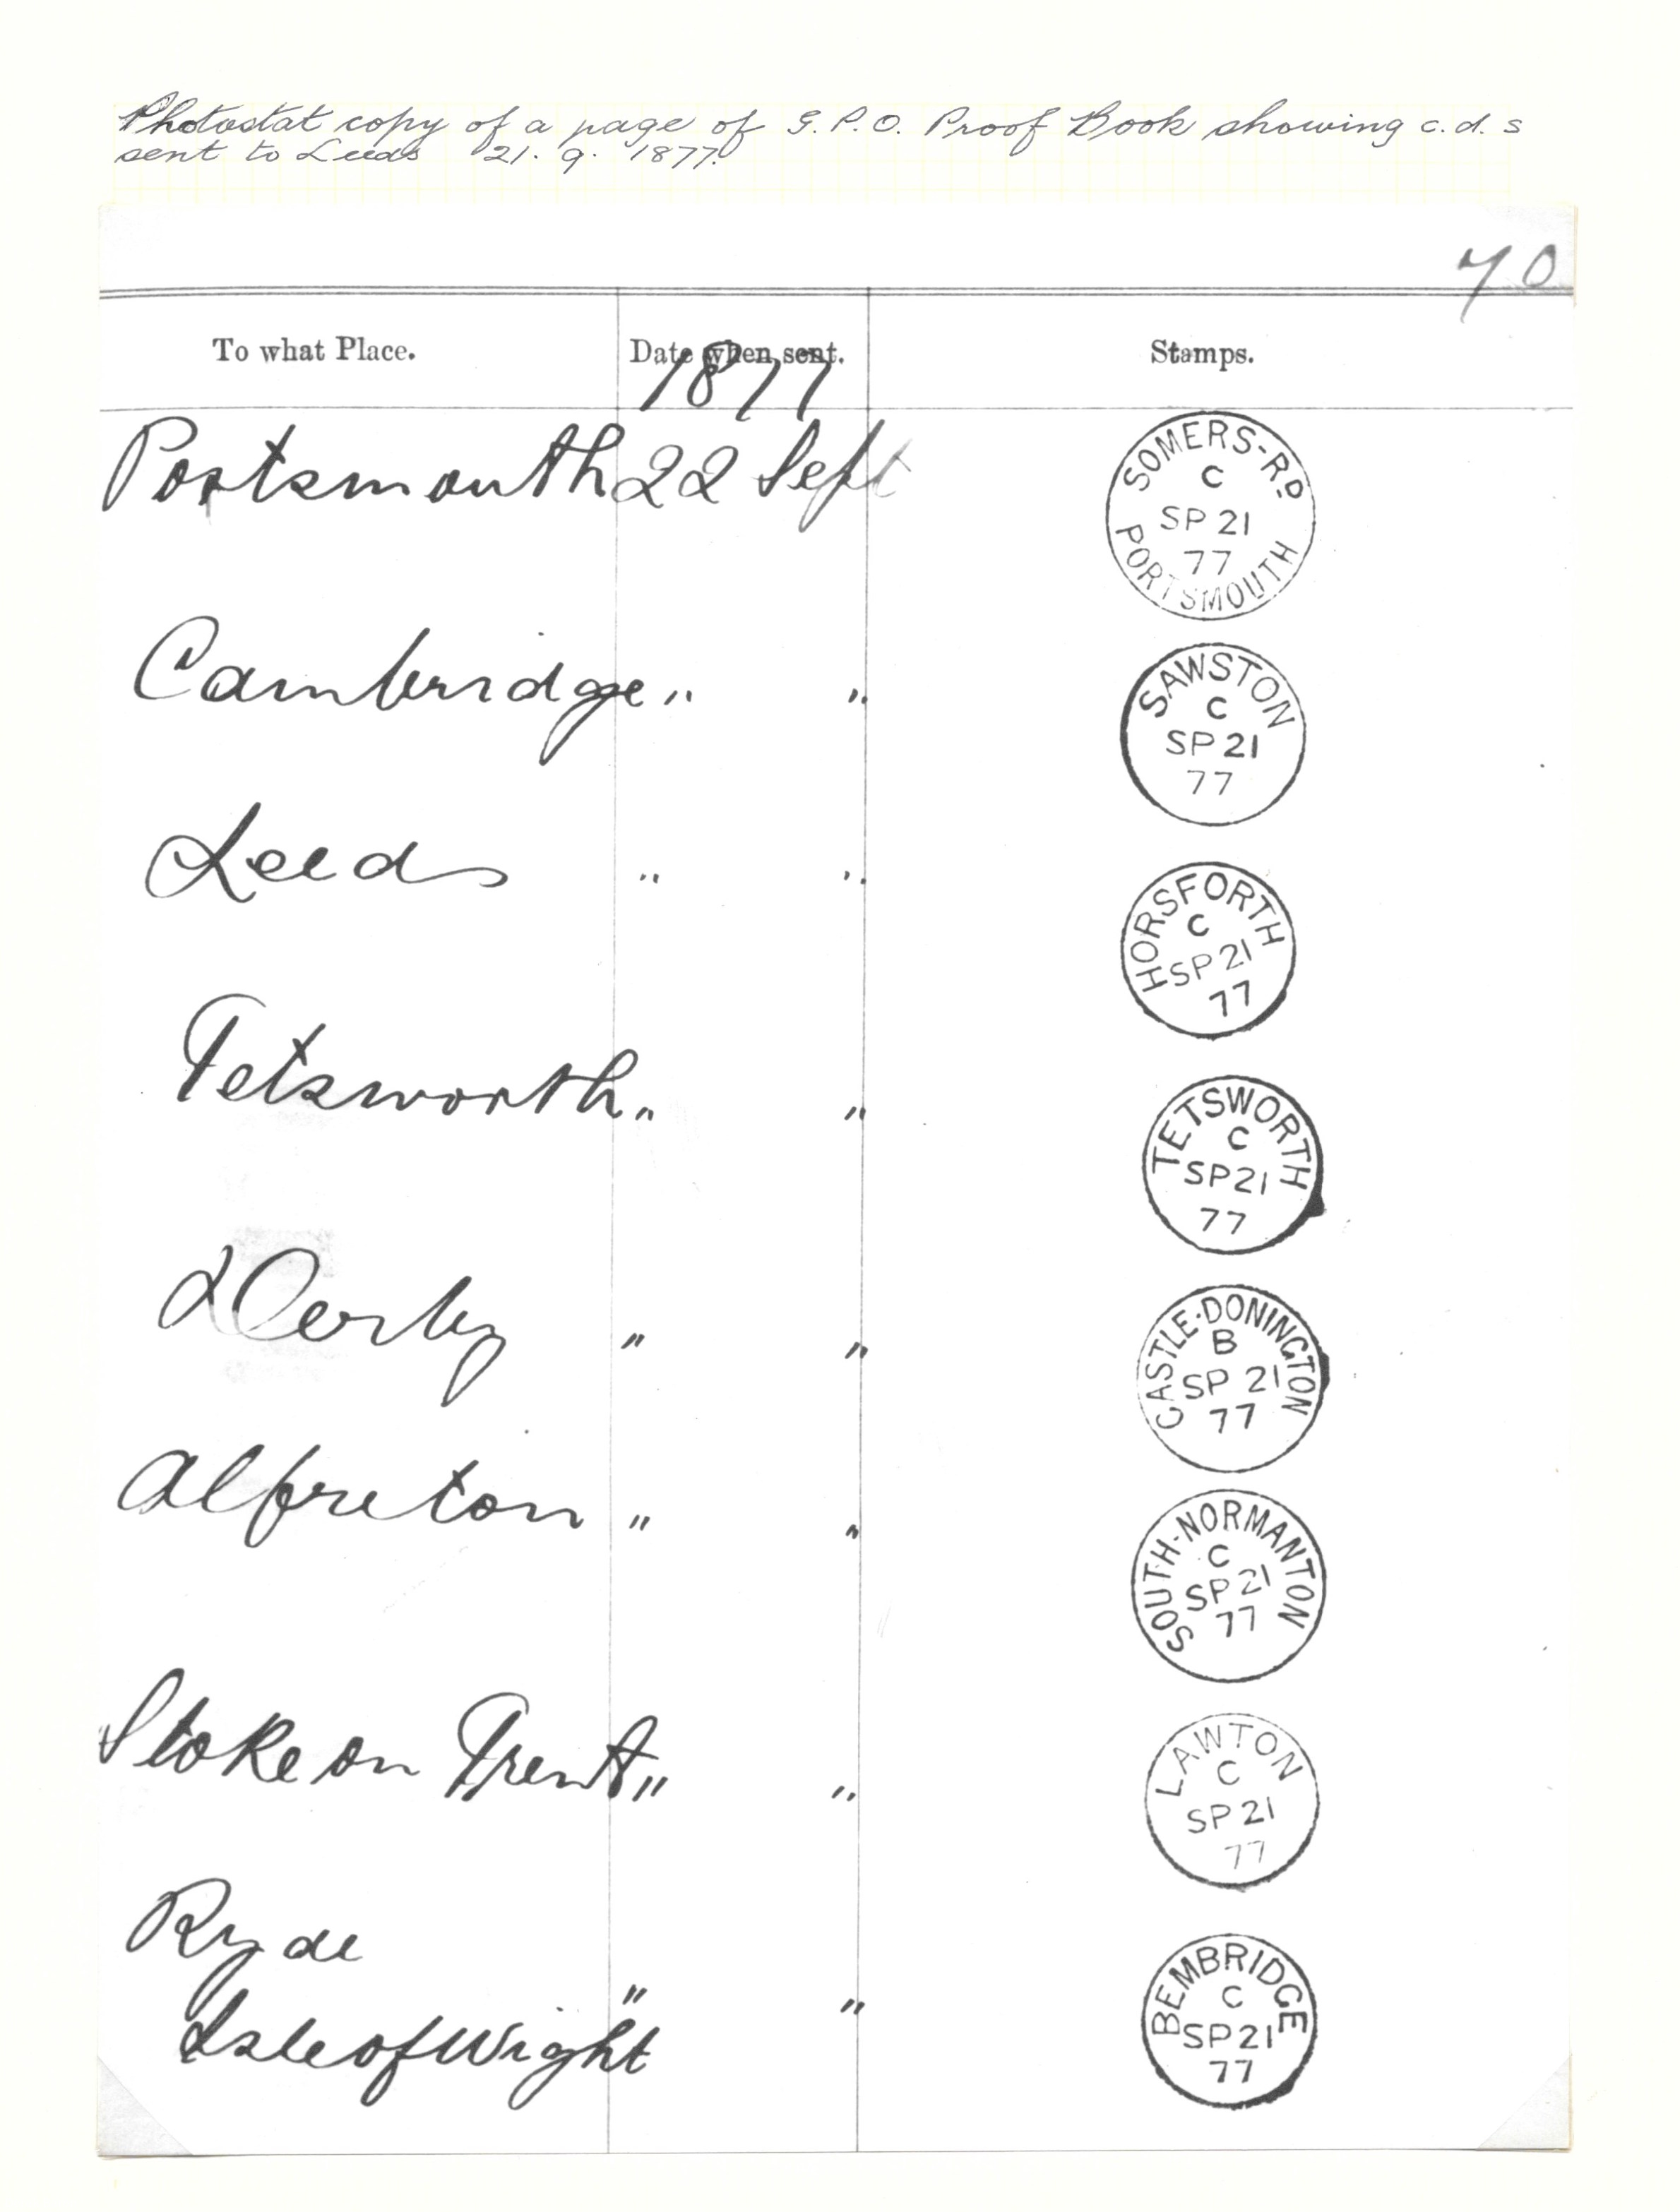 Photostat copy of a page of G.P.O. Proof Book showing c.d.s
sent to Leeds 21. 9. 1877.
70
To what Place. Date when sent. Stamps.
1877
Portsmouth 22 Sept
SOMERS-RD
C
SP 21
77
PORTSMOUTH
Cambridge " "
SAWSTON
C
SP 21
77
Leeds " "
HORSFORTH
C
SP 21
77
Tetsworth " "
TETSWORTH
C
SP 21
77
Derby " "
CASTLE·DONINGTON
B
SP 21
77
Alfreton " "
SOUTH-NORMANTON
C
SP 21
77
Stoke on Trent " "
LAWTON
C
SP 21
77
Ryde
Isle of Wight " "
BEMBRIDGE
C
SP 21
77